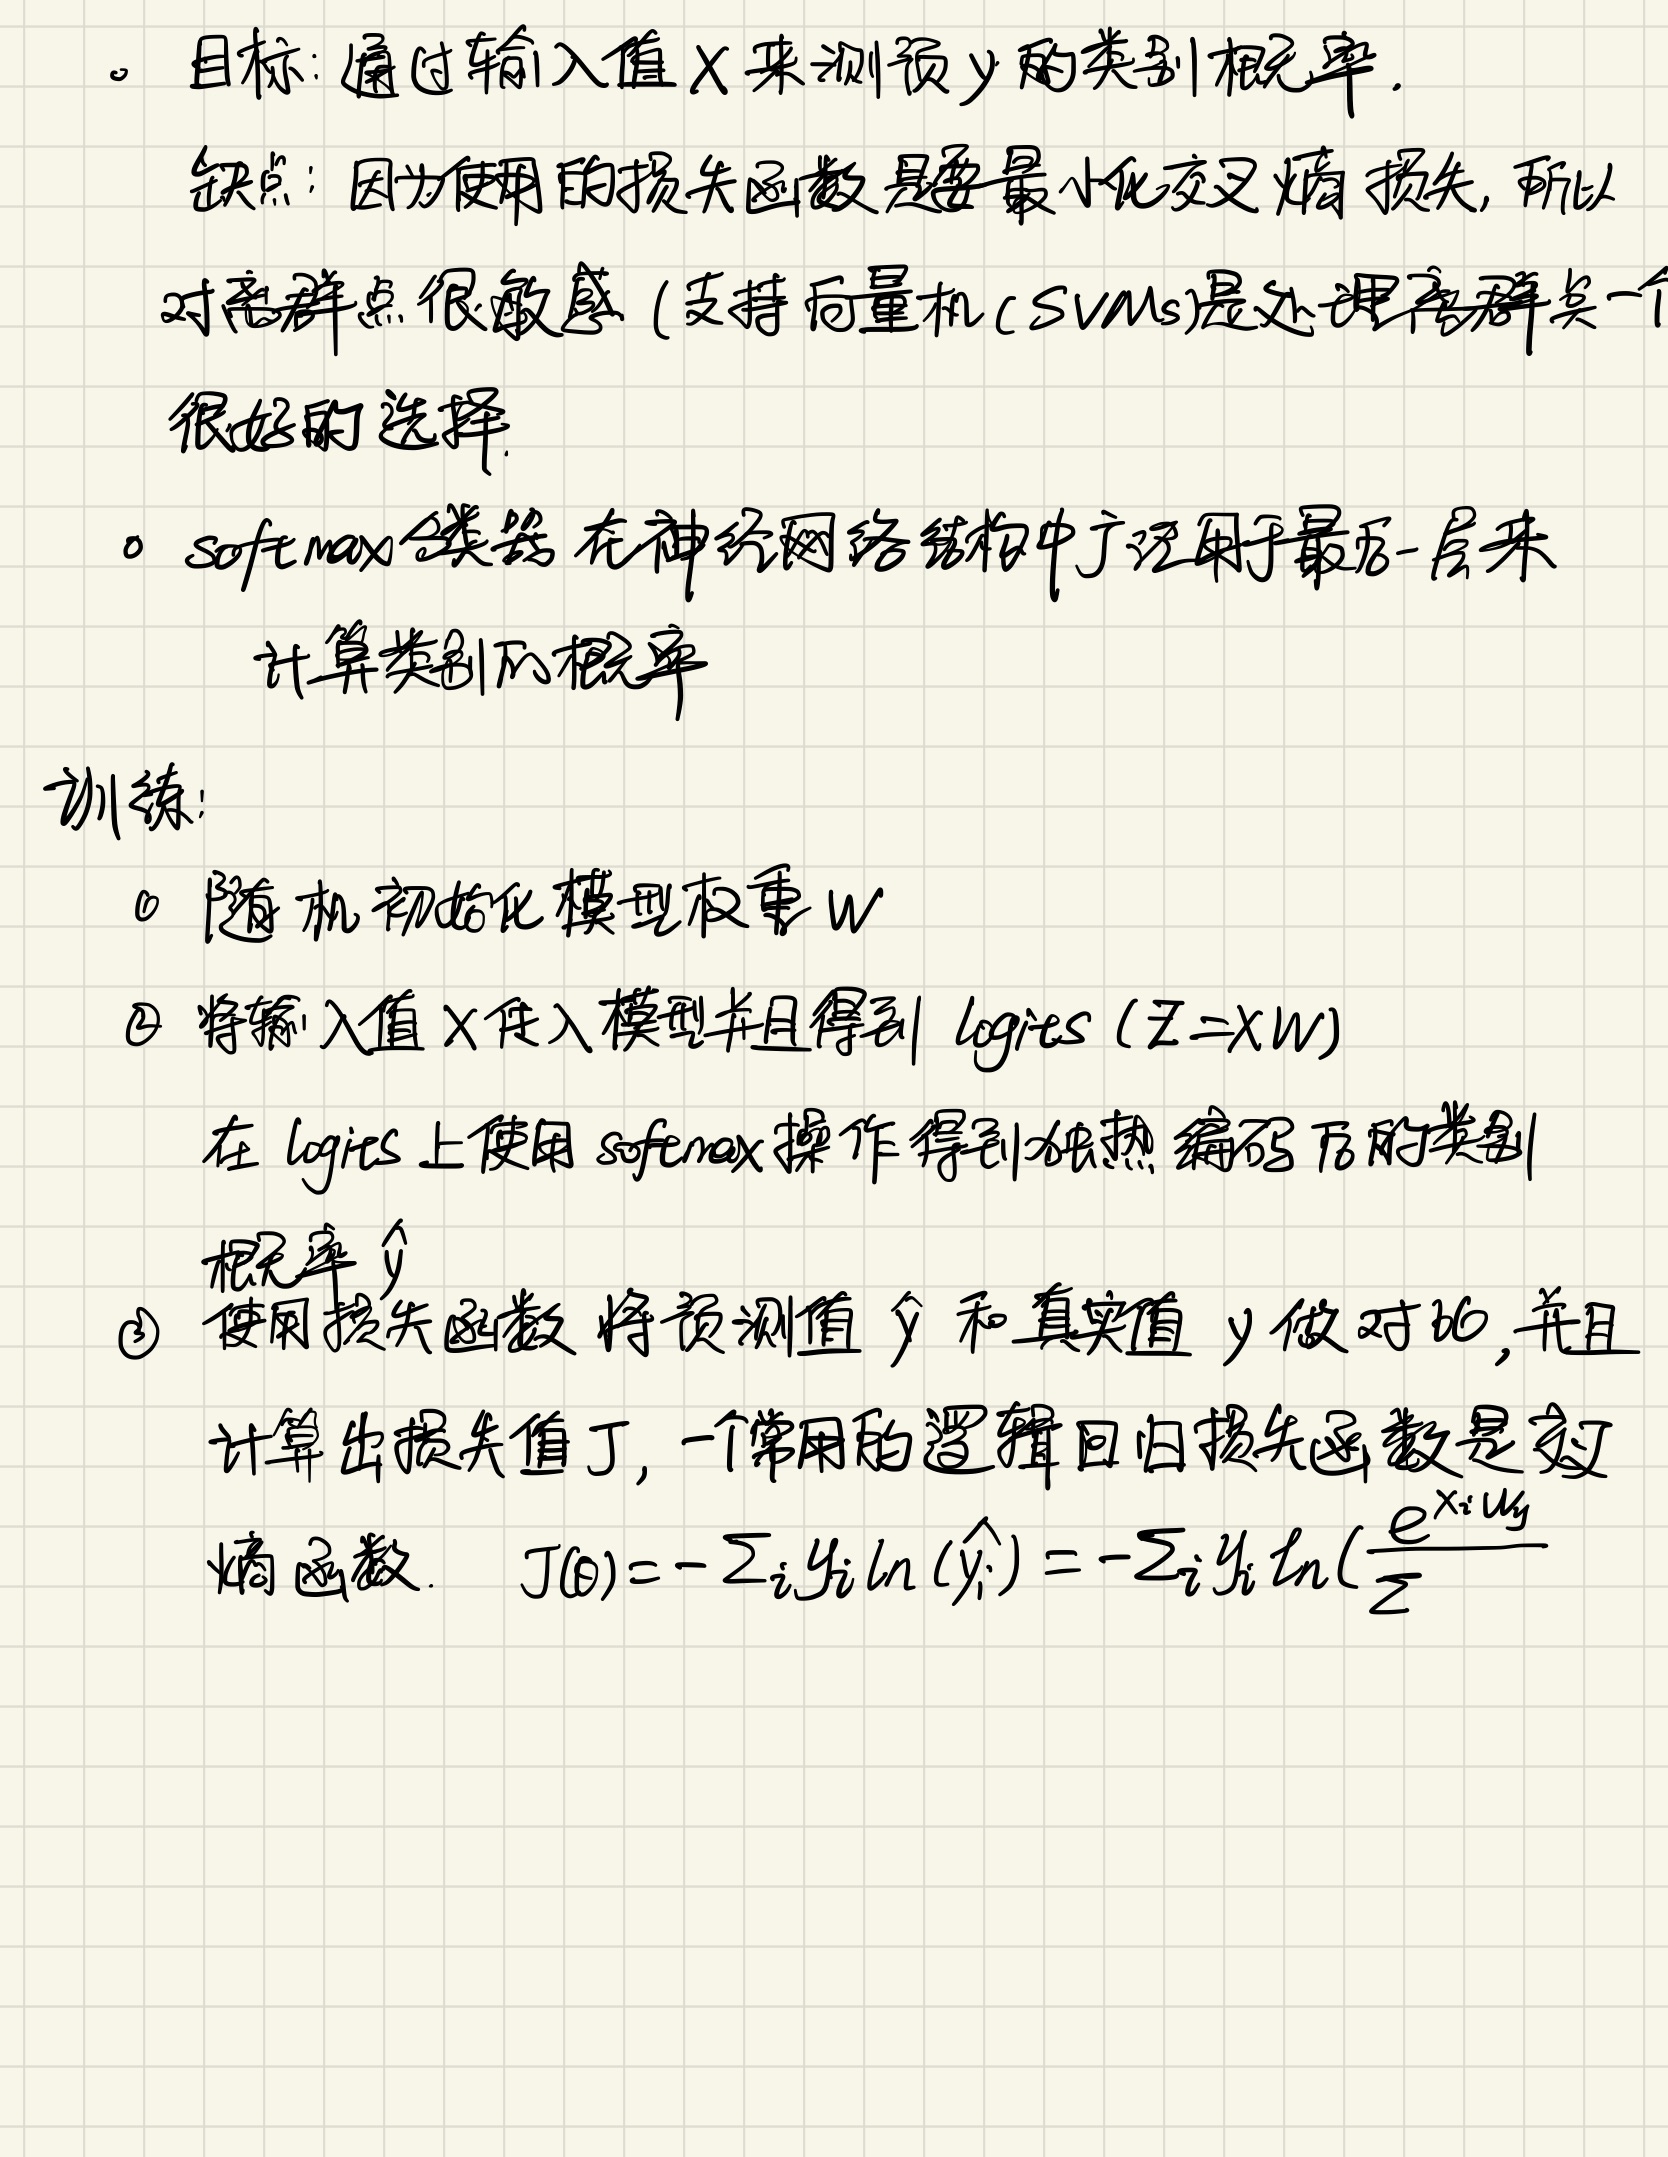 。目标：通过输入值 X 来测预 y 的类别概率.
缺点：因为使用的损失函数是要最小化交叉熵损失, 所以
对离群点很敏感 (支持向量机 (SVMs) 是处理离群类一个
很好的选择.
。softmax 分类器 在神经网络结构中广泛用于最后一层来
计算类别的概率
训练：
① 随机初始化模型权重 W
② 将输入值 X 传入模型并且得到 logits (Z=XW)
在 logits 上使用 softmax 操作得到独热编码后的类别
概率 ŷ
③ 使用损失函数 将预测值 ŷ 和真实值 y 做对比, 并且
计算出损失值 J, 一个常用的逻辑回归损失函数是交叉
熵函数. J(θ) = -Σᵢ yᵢ ln(ŷᵢ) = -Σᵢ yᵢ ln( e^{XᵢWy} / Σ